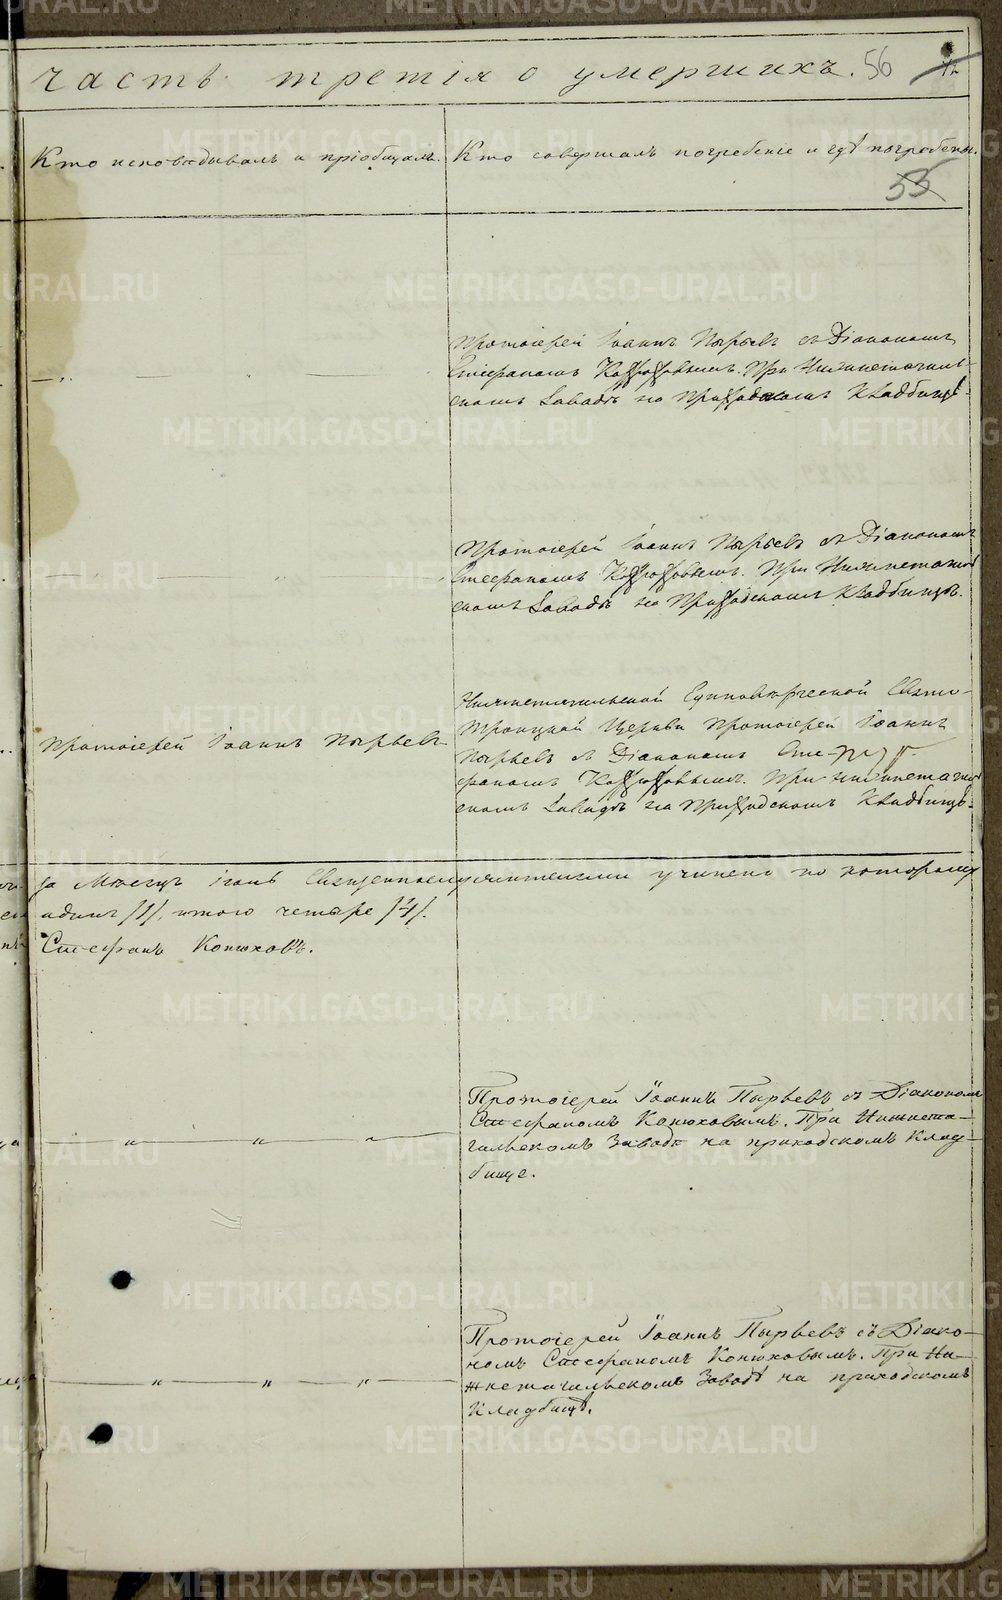 часть третія о умершихъ. 56
Кто исповѣдывалъ и пріобщалъ.
Кто совершалъ погребеніе и гдѣ погребены.
55
Протоіерей Іоаннъ Пырьевъ съ Діакономъ
Стефаномъ Конюховымъ. При Нижнетагиль-
скомъ Заводѣ на Приходскомъ Кладбищѣ.
Протоіерей Іоаннъ Пырьевъ съ Діакономъ
Стефаномъ Конюховымъ. При Нижнетагиль
скомъ Заводѣ на Приходскомъ Кладбищѣ.
Протоіерей Іоаннъ Пырьевъ
Нижнетагильской Единовѣрческой Свято-
Троицкой Церкви Протоіерей Іоаннъ
Пырьевъ съ Діакономъ Сте-
фаномъ Конюховымъ. При Нижнетагиль
скомъ Заводѣ на Приходскомъ Кладбищѣ.
за Мѣсяцъ Іюнь Священнослужителями учинено по которому
одинъ /1/, итого четыре /4/.
Стефанъ Конюховъ.
Протоіерей Іоаннъ Пырьевъ съ Діакономъ
Стефаномъ Конюховымъ. При Нижнета-
гильскомъ Заводѣ на приходскомъ Клад-
бище.
Протоіерей Іоаннъ Пырьевъ съ Діако-
номъ Стефаномъ Конюховымъ. При Ни-
жнетагильскомъ Заводѣ на приходскомъ
Кладбищѣ.
METRIKI.GASO-URAL.RU